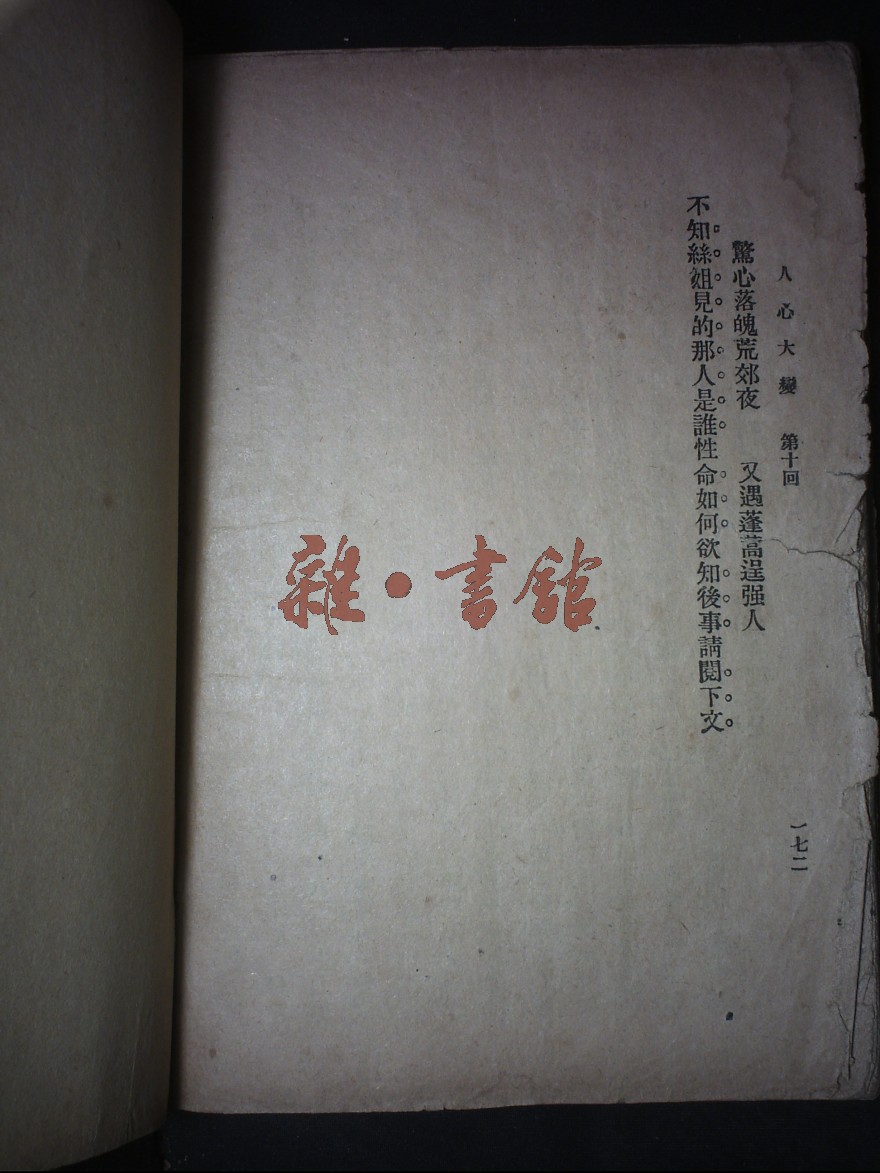 人心大變 第十回 一七二
驚心落魄荒郊夜 又遇蓬蒿逞强人
不知。絲。姐。見。的。那。人。是。誰。性命。如。何。欲知。後。事。請閱。下。文。
雜·書館